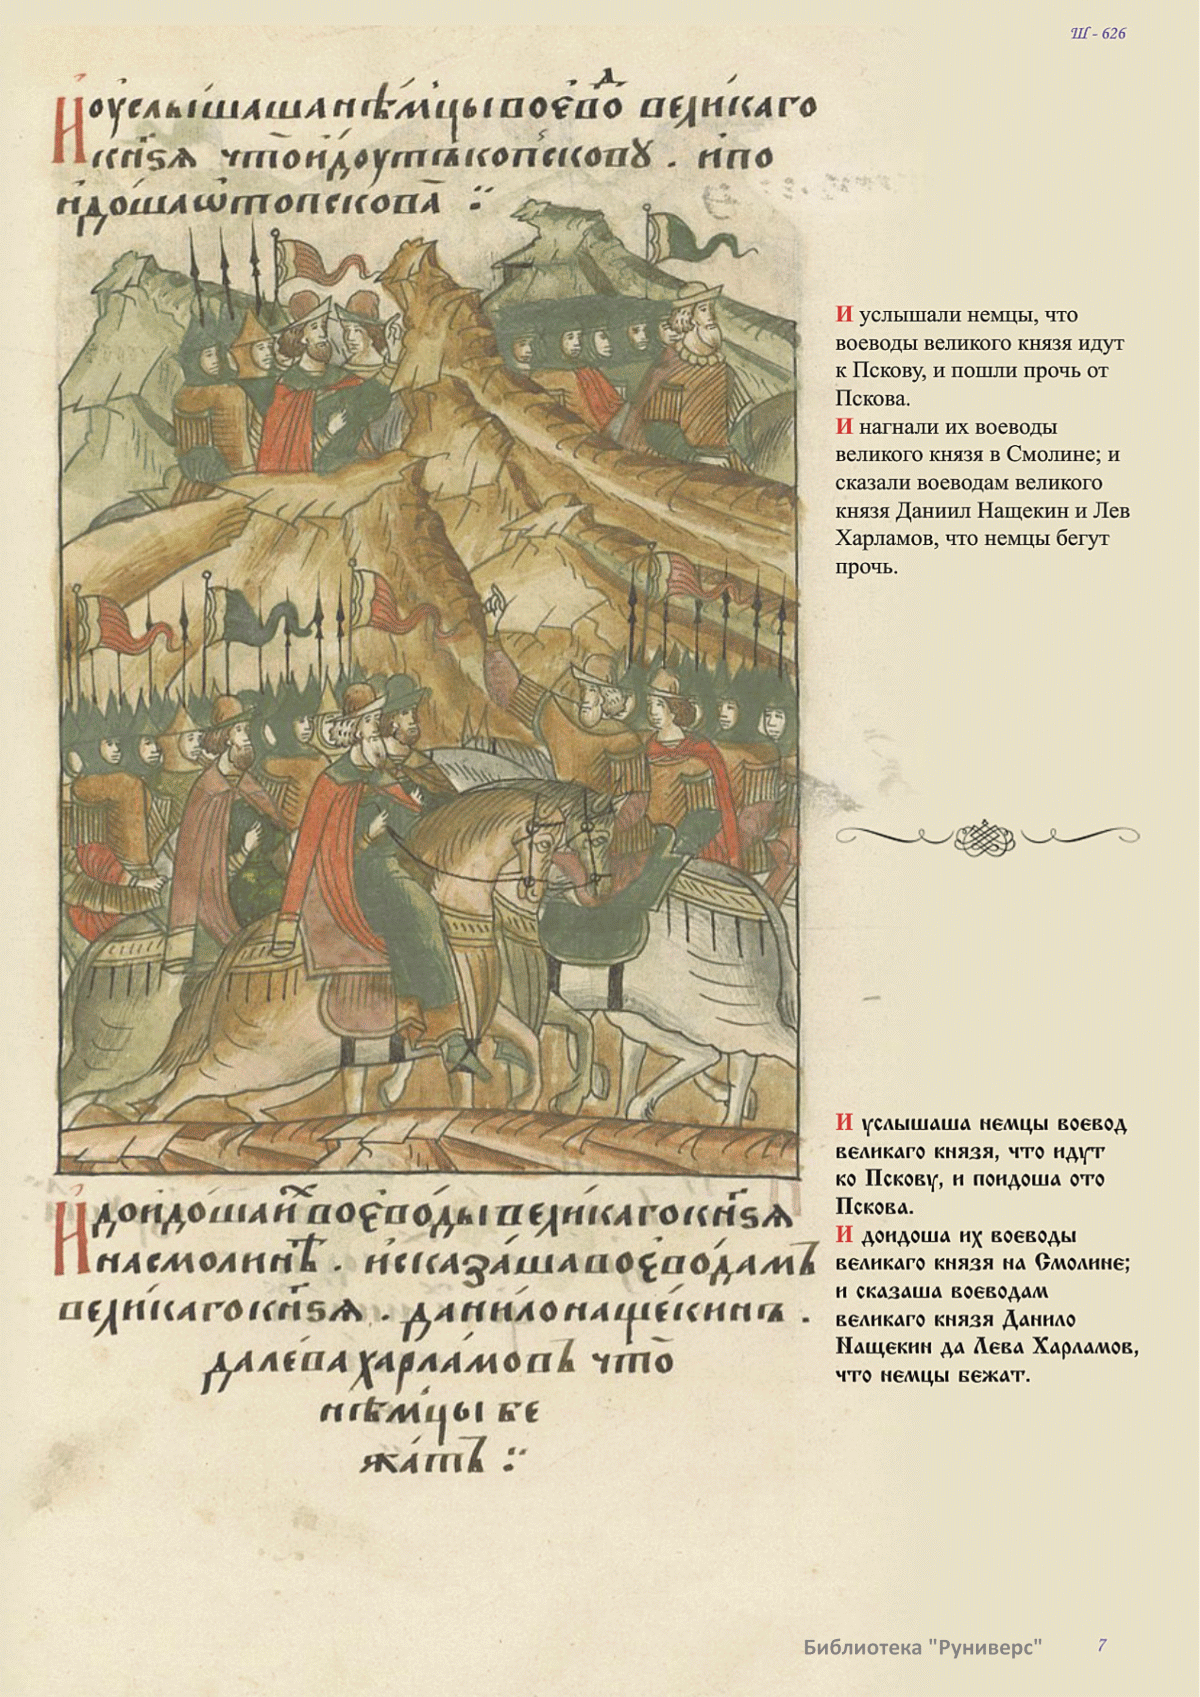 Ш - 626
И оуслышаша нѣмцы воєво҃д великаго
кн҃ѕя что идоуть ко пскову . и по
идоша ѿто пскова :·
И услышали немцы, что
воеводы великого князя идут
к Пскову, и пошли прочь от
Пскова.
И нагнали их воеводы
великого князя в Смолине; и
сказали воеводам великого
князя Даниил Нащекин и Лев
Харламов, что немцы бегут
прочь.
И услышаша немцы воєвод
великаго князя, что идут
ко Пскову, и поидоша ото
Пскова.
И доидоша их воєводы
великаго князя на Смолине;
и сказаша воєводам
великаго князя Данило
Нащекин да Лева Харламов,
что немцы бежат.
И доидоша иⷯ воєводы великаго кн҃ѕя
на смолинѣ . и сказаша воєводамъ
великаго кн҃ѕя . данило нащекинъ .
да лева харламовъ что
нѣмцы бе
жатъ :·
Библиотека "Руниверс"
7